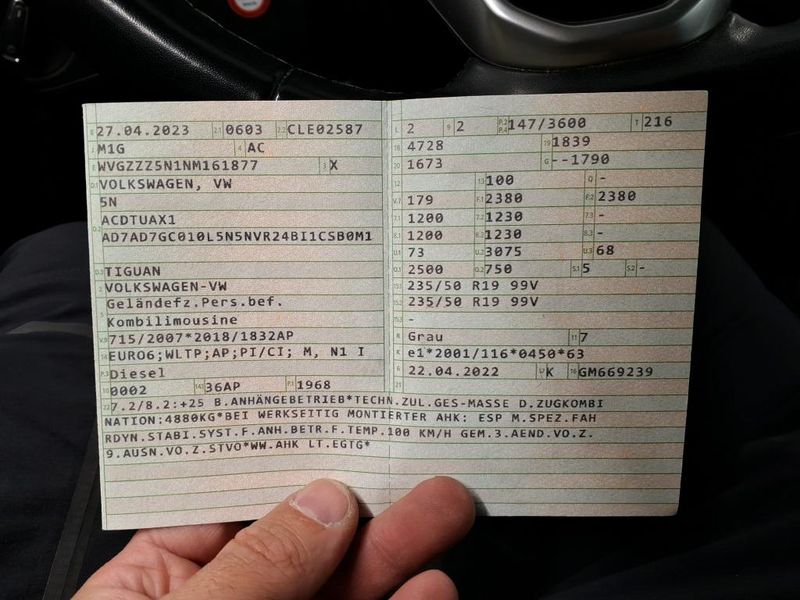 B 27.04.2023 2.1 0603 2.2 CLE02587
J M1G 4 AC
E WVGZZZ5N1NM161877 3 X
D.1 VOLKSWAGEN, VW
5N
D.2 ACDTUAX1
AD7AD7GC010L5N5NVR24BI1CSB0M1
D.3 TIGUAN
2 VOLKSWAGEN-VW
5 Geländefz.Pers.bef.
Kombilimousine
V.9 715/2007*2018/1832AP
14 EURO6;WLTP;AP;PI/CI; M, N1 I
P.3 Diesel
10 0002 14.1 36AP P.1 1968
22 7.2/8.2:+25 B.ANHÄNGEBETRIEB*TECHN.ZUL.GES-MASSE D.ZUGKOMBI
NATION:4880KG*BEI WERKSEITIG MONTIERTER AHK: ESP M.SPEZ.FAH
RDYN.STABI.SYST.F.ANH.BETR.F.TEMP.100 KM/H GEM.3.AEND.VO.Z.
9.AUSN.VO.Z.STVO*WW.AHK LT.EGTG*
L 2 9 2 P.2 P.4 147/3600 T 216
18 4728 19 1839
20 1673 G --1790
12 13 100 Q -
V.7 179 F.1 2380 F.2 2380
7.1 1200 7.2 1230 7.3 -
8.1 1200 8.2 1230 8.3 -
U.1 73 U.2 3075 U.3 68
O.1 2500 O.2 750 S.1 5 S.2 -
15.1 235/50 R19 99V
15.2 235/50 R19 99V
15.3 -
R Grau 11 7
K e1*2001/116*0450*63
6 22.04.2022 17 K 16 GM669239
21